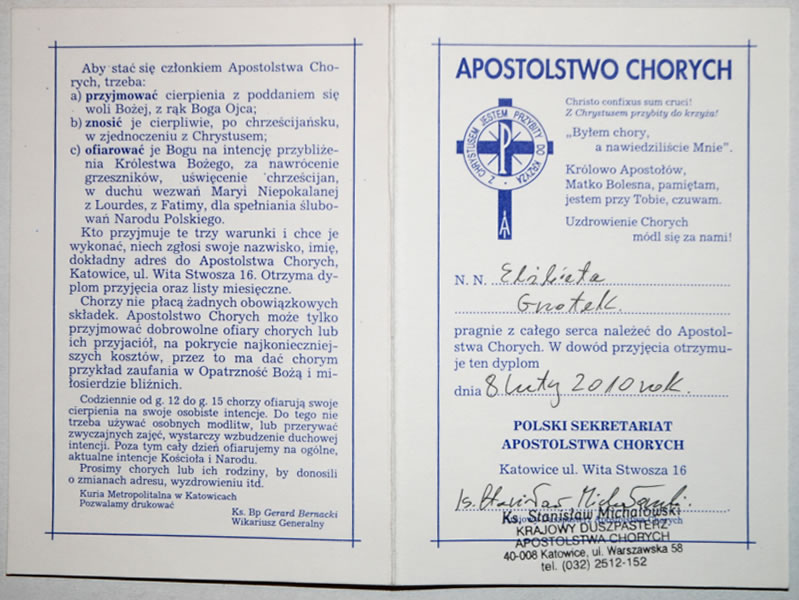 Aby stać się członkiem Apostolstwa Cho-
rych, trzeba:
a) przyjmować cierpienia z poddaniem się
woli Bożej, z rąk Boga Ojca;
b) znosić je cierpliwie, po chrześcijańsku,
w zjednoczeniu z Chrystusem;
c) ofiarować je Bogu na intencję przybliże-
nia Królestwa Bożego, za nawrócenie
grzeszników, uświęcenie chrześcijan,
w duchu wezwań Maryi Niepokalanej
z Lourdes, z Fatimy, dla spełniania ślubo-
wań Narodu Polskiego.
Kto przyjmuje te trzy warunki i chce je
wykonać, niech zgłosi swoje nazwisko, imię,
dokładny adres do Apostolstwa Chorych,
Katowice, ul. Wita Stwosza 16. Otrzyma dy-
plom przyjęcia oraz listy miesięczne.
Chorzy nie płacą żadnych obowiązkowych
składek. Apostolstwo Chorych może tylko
przyjmować dobrowolne ofiary chorych lub
ich przyjaciół, na pokrycie najkonieczniej-
szych kosztów, przez to ma dać chorym
przykład zaufania w Opatrzność Bożą i mi-
łosierdzie bliźnich.
Codziennie od g. 12 do g. 15 chorzy ofiarują swoje
cierpienia na swoje osobiste intencje. Do tego nie
trzeba używać osobnych modlitw, lub przerywać
zwyczajnych zajęć, wystarczy wzbudzenie duchowej
intencji. Poza tym cały dzień ofiarujemy na ogólne,
aktualne intencje Kościoła i Narodu.
Prosimy chorych lub ich rodziny, by donosili
o zmianach adresu, wyzdrowieniu itd.
Kuria Metropolitalna w Katowicach
Pozwalamy drukować
Ks. Bp Gerard Bernacki
Wikariusz Generalny
APOSTOLSTWO CHORYCH
Z CHRYSTUSEM JESTEM PRZYBITY DO KRZYŻA
Christo confixus sum cruci!
Z Chrystusem przybity do krzyża!
„Byłem chory,
a nawiedziliście Mnie”.
Królowo Apostołów,
Matko Bolesna, pamiętam,
jestem przy Tobie, czuwam.
Uzdrowienie Chorych
módl się za nami!
N. N. Elżbieta
Grotek.
pragnie z całego serca należeć do Apostol-
stwa Chorych. W dowód przyjęcia otrzymu-
je ten dyplom
dnia 8 luty 2010 rok.
POLSKI SEKRETARIAT
APOSTOLSTWA CHORYCH
Katowice ul. Wita Stwosza 16
ks. Stanisław Michałowski
Ks. Stanisław Michałowski
KRAJOWY DUSZPASTERZ
APOSTOLSTWA CHORYCH
40-008 Katowice, ul. Warszawska 58
tel. (032) 2512-152